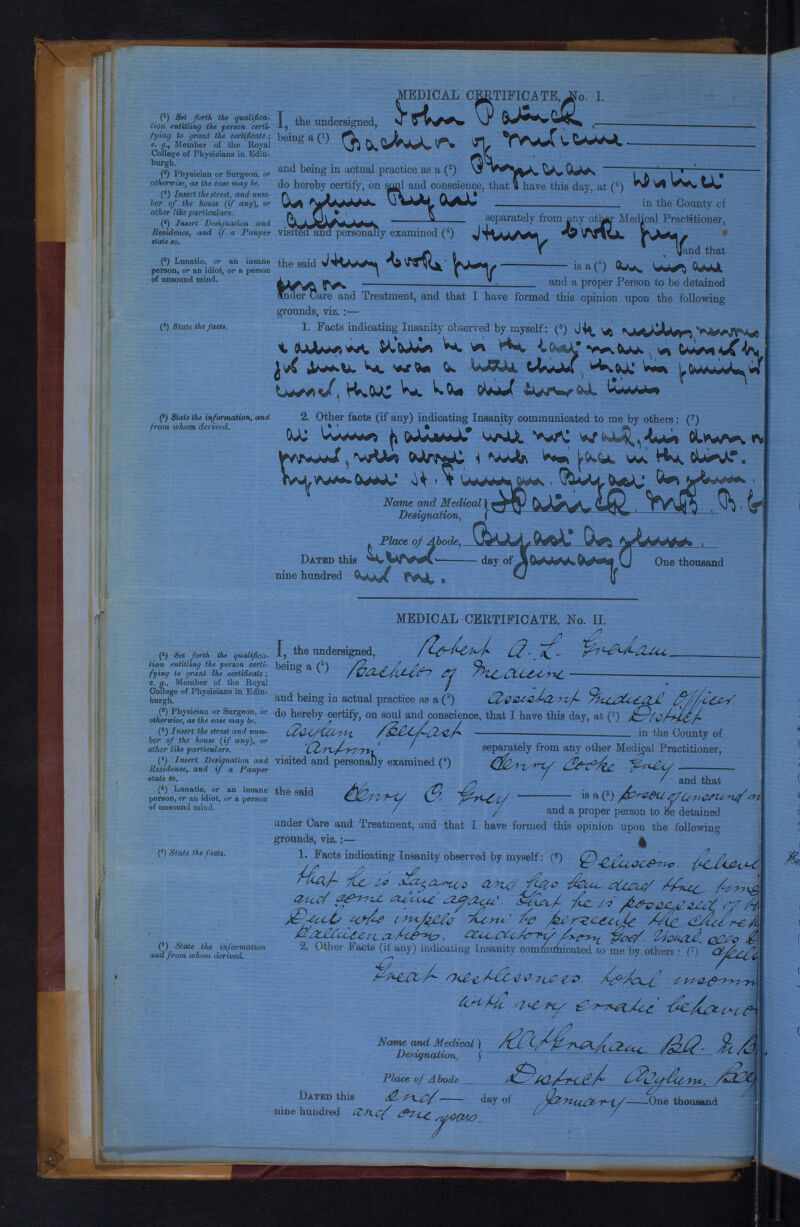 MEDICAL CERTIFICATE, No. I.
(¹) Set forth the qualifica-
tion entitling the person certi-
fying to grant the certificate;
e. g., Member of the Royal
College of Physicians in Edin-
burgh.
(²) Physician or Surgeon, or
otherwise, as the case may be.
(³) Insert the street, and num-
ber of the house (if any), or
other like particulars.
(⁴) Insert Designation and
Residence, and if a Pauper
state so.
(⁵) Lunatic, or an insane
person, or an idiot, or a person
of unsound mind.
(⁶) State the facts.
(⁷) State the information, and
from whom derived.
I, the undersigned, John Patrick
being a (¹) Bachelor of Medicine
and being in actual practice as a (²) Physician
do hereby certify, on soul and conscience, that I have this day, at (³) District
Asylum Belfast in the County of
Antrim separately from any other Medical Practitioner,
visited and personally examined (⁴) Henry Cooke Grey
and that
the said Henry Cooke Grey is a (⁵) an insane
person and a proper Person to be detained
under Care and Treatment, and that I have formed this opinion upon the following
grounds, viz. :—
1. Facts indicating Insanity observed by myself: (⁶) He is restless, nervous
& delusive states he is the last man, is cursed by
God since he was a little child, that his family is
cursed, that he has died several times
2. Other facts (if any) indicating Insanity communicated to me by others: (⁷)
At times patient will not walk, lies down on
ground, rolls about & rubs his face in the dirt.
Informant St. Finnigan. Belfast Asylum.
Name and Medical Designation, J Patrick. M.B. B.C
Place of Abode, Belfast Asylum.
DATED this Second day of January One thousand
nine hundred and one.
MEDICAL CERTIFICATE, No. II.
(¹) Set forth the qualifica-
tion entitling the person certi-
fying to grant the certificate;
e. g., Member of the Royal
College of Physicians in Edin-
burgh.
(²) Physician or Surgeon, or
otherwise, as the case may be.
(³) Insert the street and num-
ber of the house (if any), or
other like particulars.
(⁴) Insert Designation and
Residence, and if a Pauper
state so.
(⁵) Lunatic, or an insane
person, or an idiot, or a person
of unsound mind.
(⁶) State the facts.
(⁷) State the information
and from whom derived.
I, the undersigned, Robert A. L. Graham
being a (¹) Bachelor of Medicine
and being in actual practice as a (²) Assistant Medical Officer
do hereby certify, on soul and conscience, that I have this day, at (³) District
Asylum Belfast in the County of
Antrim separately from any other Medical Practitioner,
visited and personally examined (⁴) Henry Cooke Grey
and that
the said Henry C. Grey is a (⁵) person of unsound m
and a proper person to be detained
under Care and Treatment, and that I have formed this opinion upon the following
grounds, viz. :—
1. Facts indicating Insanity observed by myself: (⁶) Delusions. believe
that he is Lazarus and has been dead three time
and come alive again. That he is possessed of th
Devil who impels him to persecute the Church
Hallucinations. auditory from God. Visual. also
2. Other Facts (if any) indicating Insanity communicated to me by others: (⁷)
Great restlessness. total insomn
with very erratic behavio
Name and Medical Designation, RALGraham B.A. M.B
Place of Abode District Asylum. Bel
DATED this 2nd day of January One thousand
nine hundred and one years.